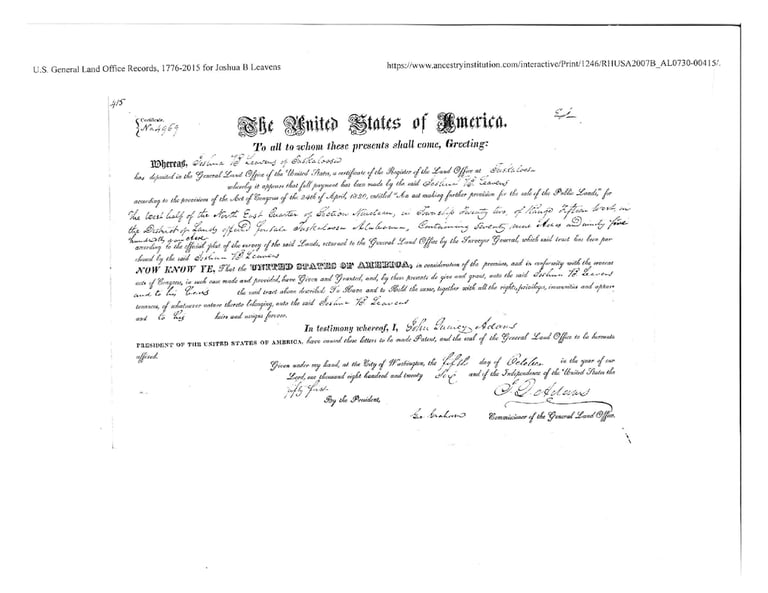 U.S. General Land Office Records, 1776-2015 for Joshua B Leavens
https://www.ancestryinstitution.com/interactive/Print/1246/RHUSA2007B_AL0730-00415/.
415
Certificate.
No 4969
The United States of America.
To all to whom these presents shall come, Greeting:
Whereas, Joshua B Leavens of Tuskaloosa
has deposited in the General Land Office of the United States, a certificate of the Register of the Land Office at Tuskaloosa
whereby it appears that full payment has been made by the said Joshua B Leavens
according to the provisions of the Act of Congress of the 24th of April, 1820, entitled "An act making further provision for the sale of the Public Lands," for
The West half of the North East Quarter of Section in Township Twenty two, of Range Fifteen West, in
the District of Lands offered for sale Tuskaloosa Alabama, Containing Seventy nine Acres and ninety five
hundredths of an Acre
according to the official plat of the survey of the said Lands, returned to the General Land Office by the Surveyor General, which said tract has been pur-
chased by the said Joshua B Leavens
NOW KNOW YE, That the UNITED STATES OF AMERICA, in consideration of the premises, and in conformity with the several
acts of Congress, in such case made and provided, have Given and Granted, and, by these presents do give and grant, unto the said Joshua B Leavens
and to his heirs the said tract above described: To Have and to Hold the same, together with all the rights, privileges, immunities and appur-
tenances, of whatsoever nature thereto belonging, unto the said Joshua B Leavens
and to his heirs and assigns forever.
In testimony whereof, I, John Quincy Adams
PRESIDENT OF THE UNITED STATES OF AMERICA, have caused these letters to be made Patent, and the seal of the General Land Office to be hereunto
affixed.
Given under my hand, at the City of Washington, the fifth day of October in the year of our
Lord, one thousand eight hundred and twenty Six and of the Independence of the United States the
fifty first
J. Q. Adams
By the President,
Geo Graham Commissioner of the General Land Office.